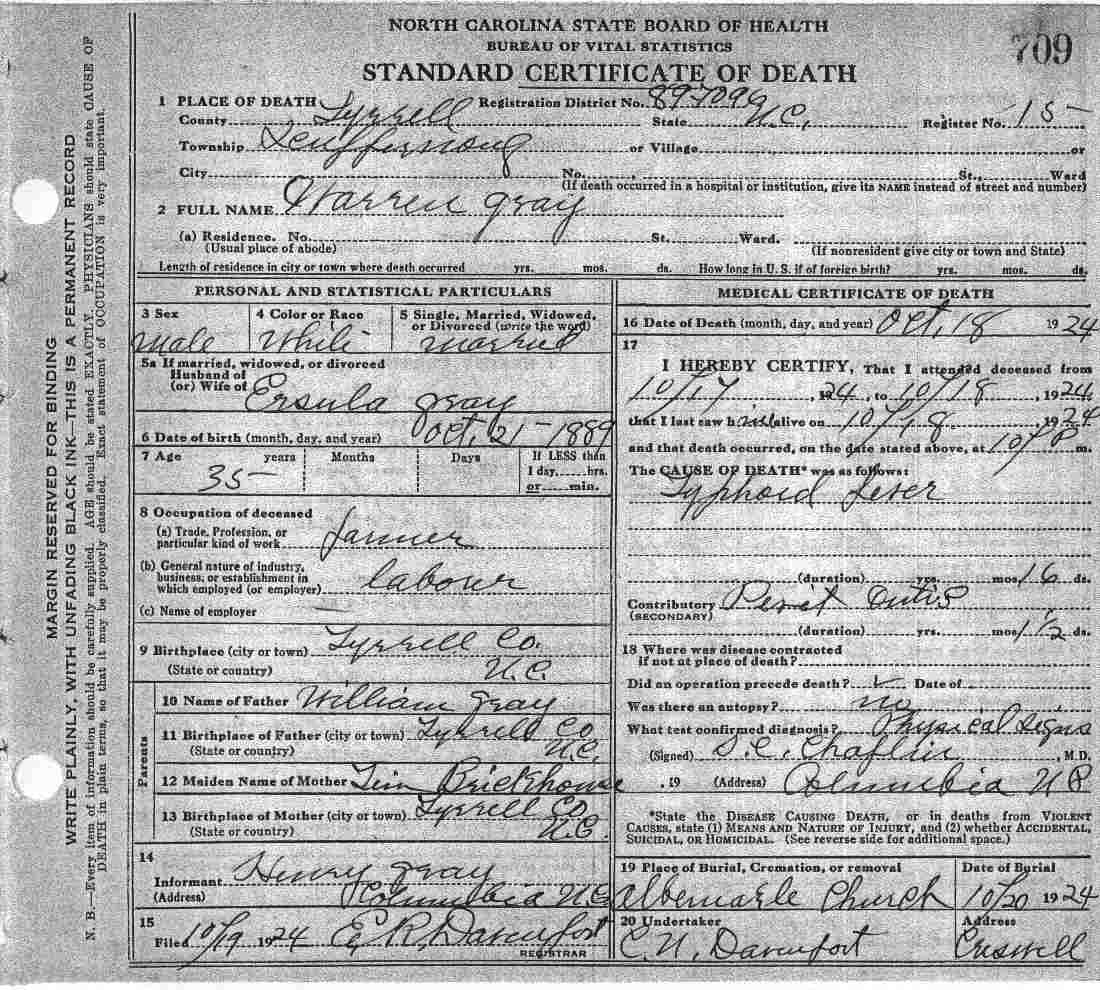 NORTH CAROLINA STATE BOARD OF HEALTH
BUREAU OF VITAL STATISTICS
STANDARD CERTIFICATE OF DEATH
709
1 PLACE OF DEATH Registration District No. 897099
County Tyrrell State N.C. Register No. 15
Township or Village or
City No. , St., Ward
(If death occurred in a hospital or institution, give its NAME instead of street and number)
2 FULL NAME Warren Gray
(a) Residence. No. St., Ward.
(Usual place of abode) (If nonresident give city or town and State)
Length of residence in city or town where death occurred yrs. mos. ds. How long in U. S. if of foreign birth? yrs. mos. ds.
PERSONAL AND STATISTICAL PARTICULARS
3 Sex
male
4 Color or Race
White
5 Single, Married, Widowed,
or Divorced (write the word)
married
5a If married, widowed, or divorced
Husband of
(or) Wife of Ersula Gray
6 Date of birth (month, day, and year) Oct, 21-1889
7 Age years Months Days If LESS than
1 day,......hrs.
or......min.
35
8 Occupation of deceased
(a) Trade, Profession, or
particular kind of work farmer
(b) General nature of industry,
business, or establishment in
which employed (or employer) labour
(c) Name of employer —
9 Birthplace (city or town) Tyrrell Co.
(State or country) N.C.
Parents
10 Name of Father William Gray
11 Birthplace of Father (city or town) Tyrrell Co
(State or country) N.C.
12 Maiden Name of Mother Brickhouse
13 Birthplace of Mother (city or town) Tyrrell Co
(State or country) N.C.
14
Informant Henry Gray
(Address) Columbia N.C.
15
Filed 10/19 1924 E R Davenport
REGISTRAR
MEDICAL CERTIFICATE OF DEATH
16 Date of Death (month, day, and year) Oct, 18 1924
17
I HEREBY CERTIFY, That I attended deceased from
10/17, 1924, to 10/18, 1924
that I last saw him alive on 10/18. 1924
and that death occurred, on the date stated above, at 10 P m.
The CAUSE OF DEATH* was as follows:
Typhoid Fever
(duration) yrs. mos. 16 ds.
Contributory
(SECONDARY)
(duration) yrs. mos. 1 1/2 ds.
18 Where was disease contracted
if not at place of death?
Did an operation precede death? Date of
Was there an autopsy? no
What test confirmed diagnosis? Physical Signs
(Signed) , M.D.
, 19 (Address) Columbia N C
*State the DISEASE CAUSING DEATH, or in deaths from VIOLENT
CAUSES, state (1) MEANS AND NATURE OF INJURY, and (2) whether ACCIDENTAL,
SUICIDAL, OR HOMICIDAL. (See reverse side for additional space.)
19 Place of Burial, Cremation, or removal
Albemarle Church
Date of Burial
10/20 1924
20 Undertaker
C. N. Davenport
Address
Creswell
MARGIN RESERVED FOR BINDING
WRITE PLAINLY, WITH UNFADING BLACK INK—THIS IS A PERMANENT RECORD
N. B.—Every item of information should be carefully supplied. AGE should be stated EXACTLY. PHYSICIANS should state CAUSE OF
DEATH in plain terms, so that it may be properly classified. Exact statement of OCCUPATION is very important.